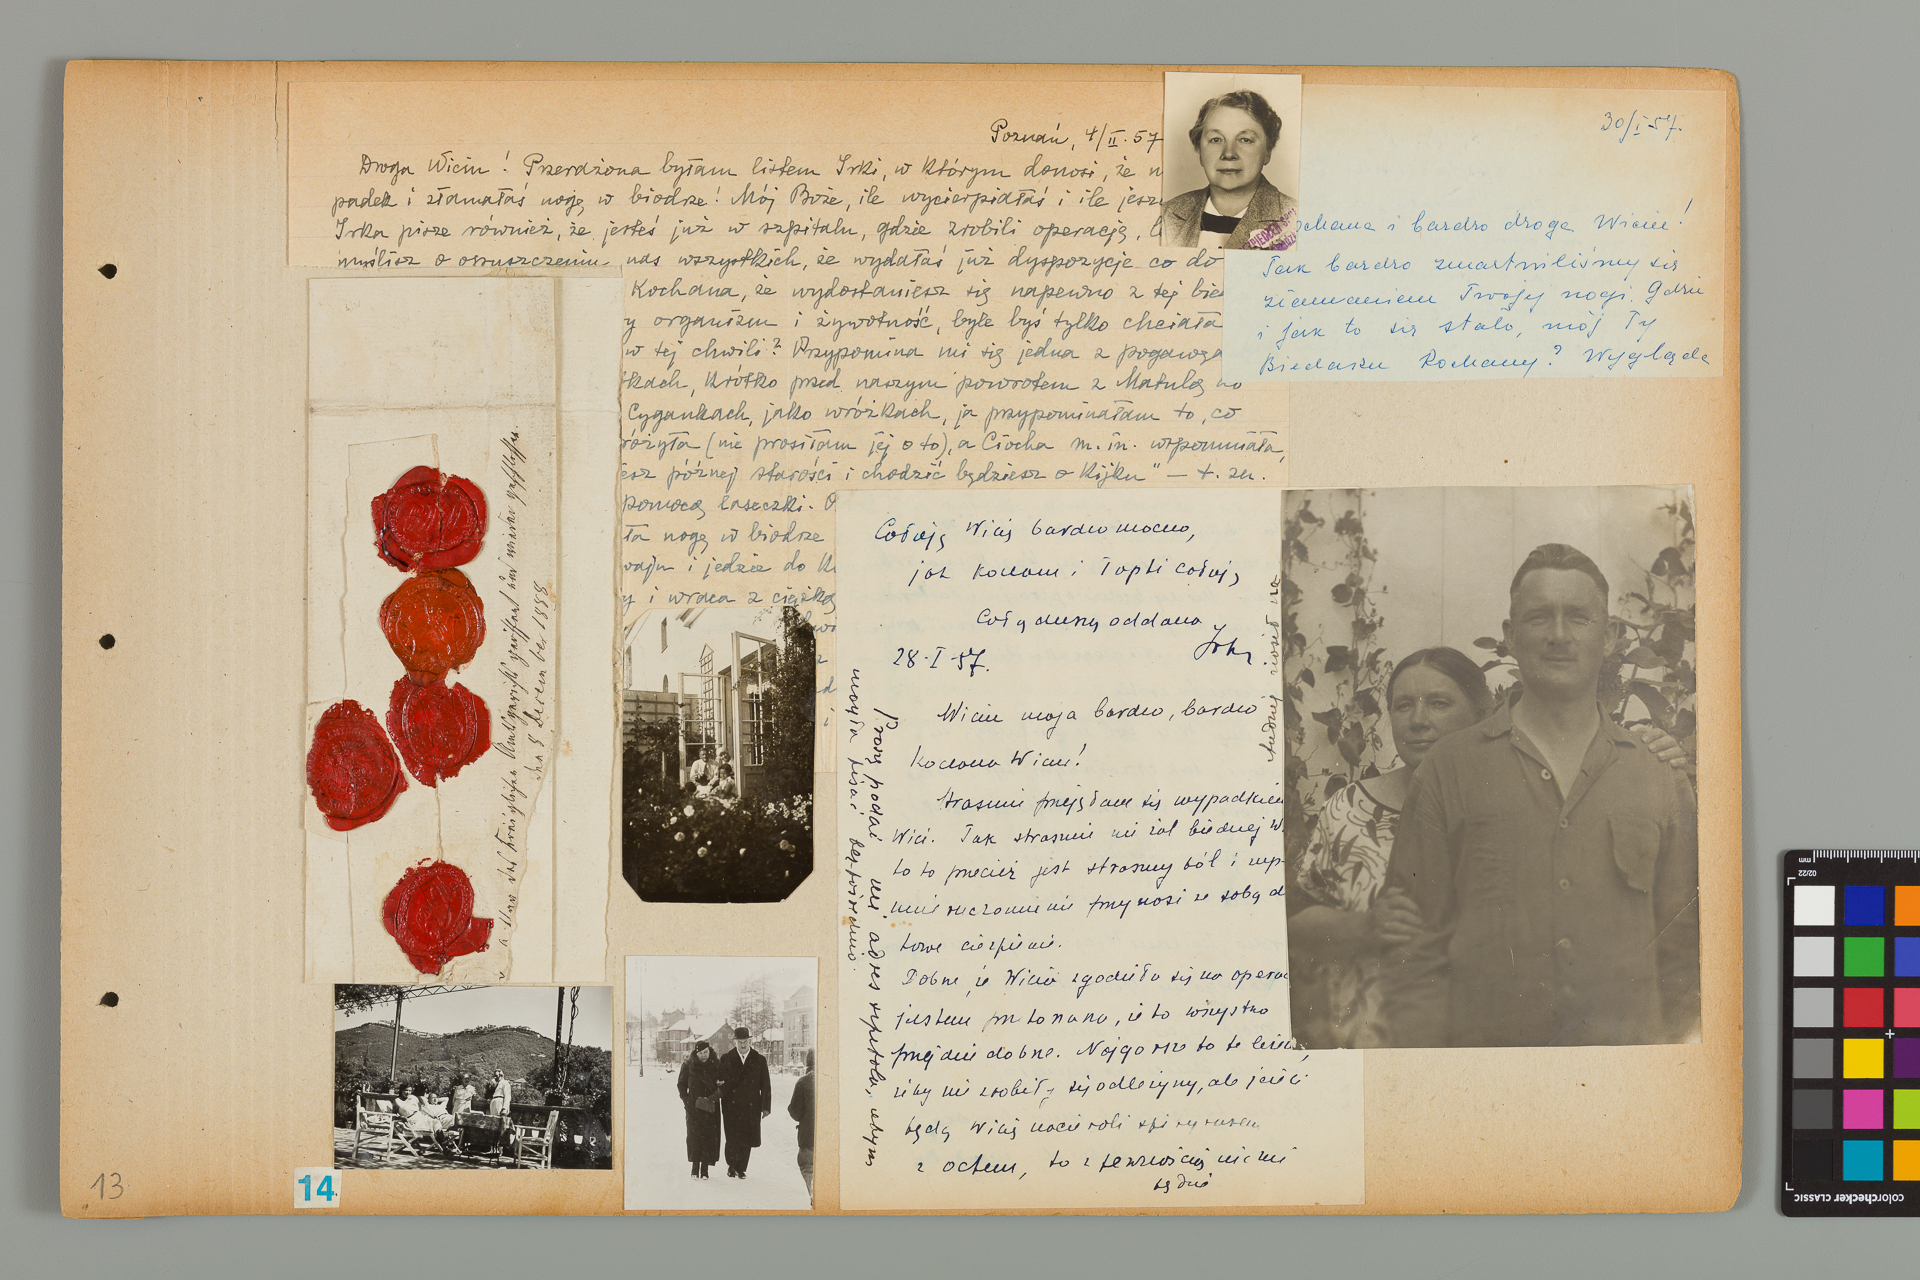 Poznań, 4/II.57
Droga Wiciu! Przerażona byłam listem Irki, w którym donosi, że w
padek i złamałaś nogę w biodrze! Mój Boże, ile wycierpiałaś i ile jesz
Irka pisze również, że jesteś już w szpitalu, gdzie zrobili operację,
myślisz o opuszczeniu nas wszystkich, że wydałaś już dyspozycje co do
Kochana, że wydostaniesz się napewno z tej bie
y organizm i żywotność, byłe byś tylko chciała
w tej chwili? Przypomina mi się jedna z pogawę
tkach, krótko przed naszym powrotem z Matulą
Cygankach, jako wróżkach, ja przypominałam to, co
różyła (nie prosiłam jej o to), a Ciocha m.in. wspomniała,
esz późnej starości i chodzić będziesz o kijku" – t. zn.
pomocą laseczki.
ła nogę w biodrze
waju i jedzie do
y i wraca z ciężką
30/I 57.
ochana i bardzo droga Wiciu!
Tak bardzo zmartwiliśmy się
złamaniem Twojej nogi. Gdzie
i jak to się stało, mój Ty
Biedaku Kochany? Wygląda
Całuję Wicię bardzo mocno,
jak kocham i Topsi całuję
Całą duszą oddana
28.I.57.
Wiciu moja bardzo, bardzo
kochana Wiciu!
Strasznie przejęłam się wypadkiem
Wici. Tak strasznie mi żal biednej W
to to przecież jest straszny ból i
unieruchomienie przynosi ze sobą d
towe cierpienie.
Dobrze, że Wicia zgodziła się na opera
jestem przekonana, że to wszystko
przejdzie dobrze. Najgorsze to te
żeby nie zrobiły się odleżyny, ale jeżeli
będą Wicię nacierali spirytusem
z octem, to z pewnością nie
będzie
Proszę podać mi adres szpitala, abym
mogła pisać bezpośrednio.
den 8 Dezember 1888
13
14
mm
02/22
colorchecker CLASSIC